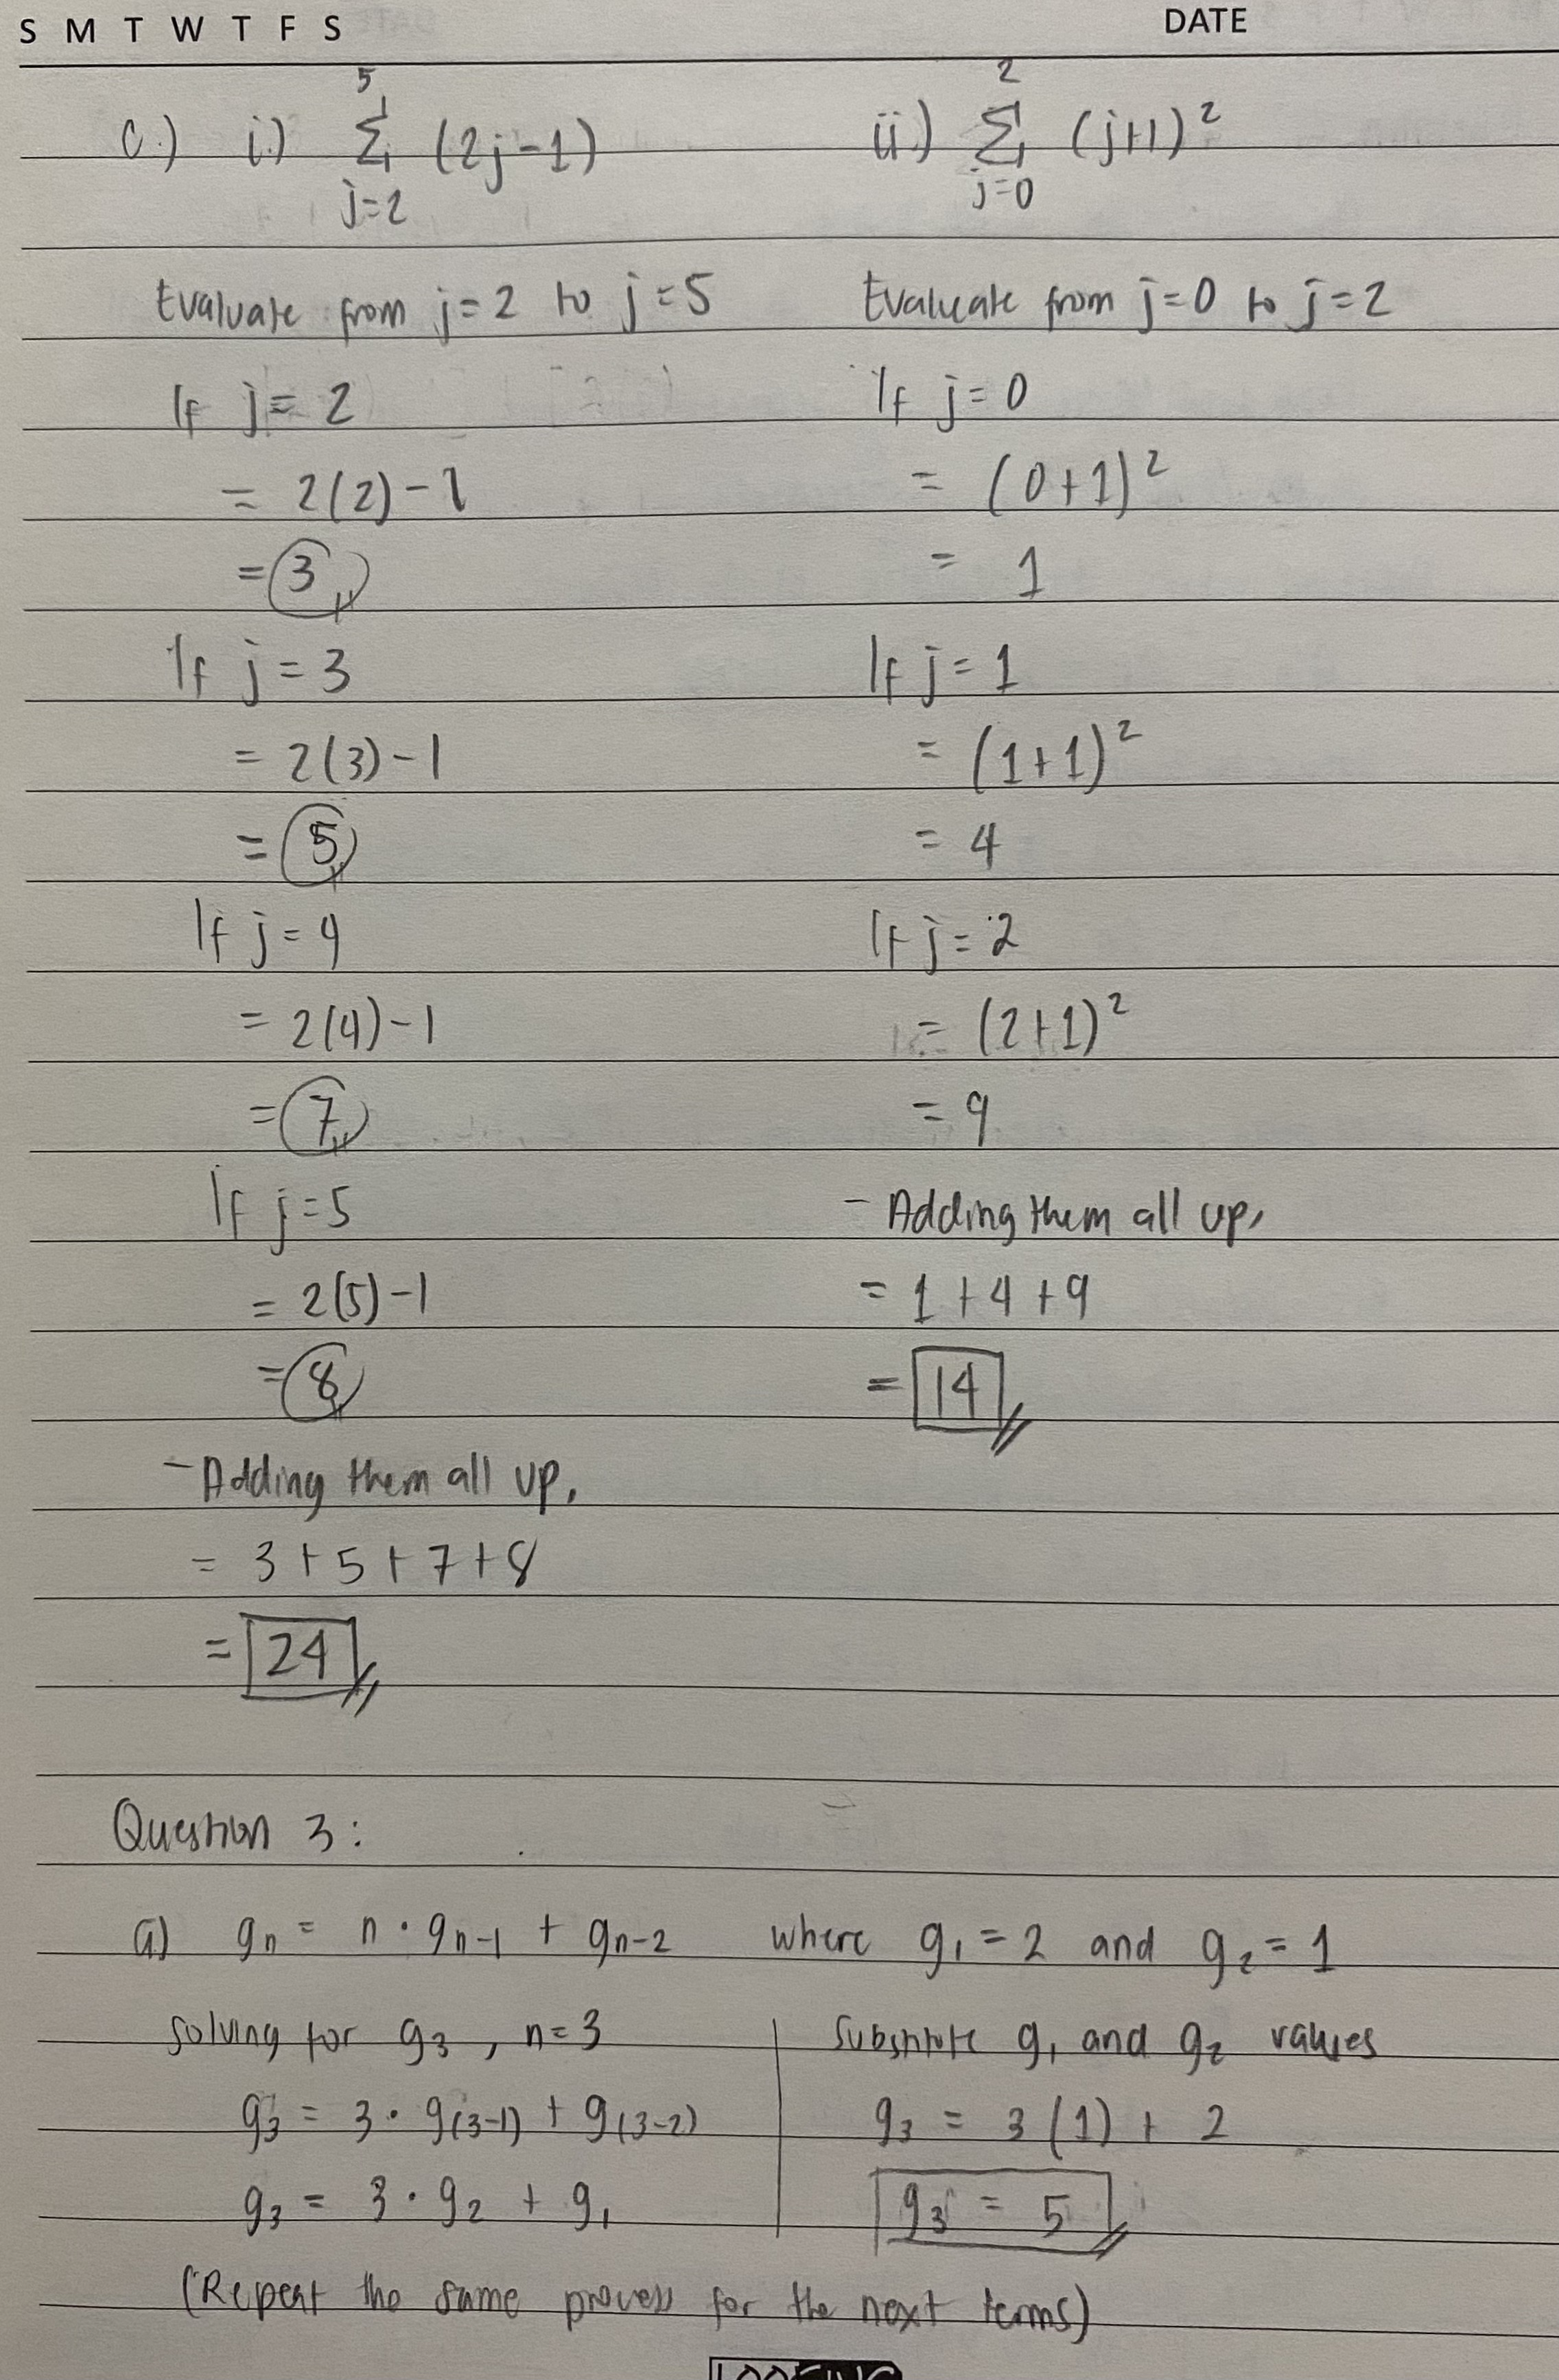 S M T W T F S DATE
c.) i.) 5 Σ j=2 (2j-1)
Evaluate from j=2 to j=5
If j= 2
= 2(2)-1
= 3
If j=3
= 2(3)-1
= 5
If j=4
= 2(4)-1
= 7
If j=5
= 2(5)-1
= 8
- Adding them all up,
= 3+5+7+8
= 24
ii.) 2 Σ j=0 (j+1)²
Evaluate from j=0 to j=2
If j=0
= (0+1)²
= 1
If j=1
= (1+1)²
= 4
If j=2
= (2+1)²
= 9
- Adding them all up,
= 1+4+9
= 14
Question 3:
a) gₙ = n · gₙ₋₁ + gₙ₋₂ where g₁=2 and g₂=1
solving for g₃, n=3
g₃ = 3 · g₍₃₋₁₎ + g₍₃₋₂₎
g₃ = 3 · g₂ + g₁
substitute g₁ and g₂ values
g₃ = 3(1) + 2
g₃ = 5
(Repeat the same process for the next terms)